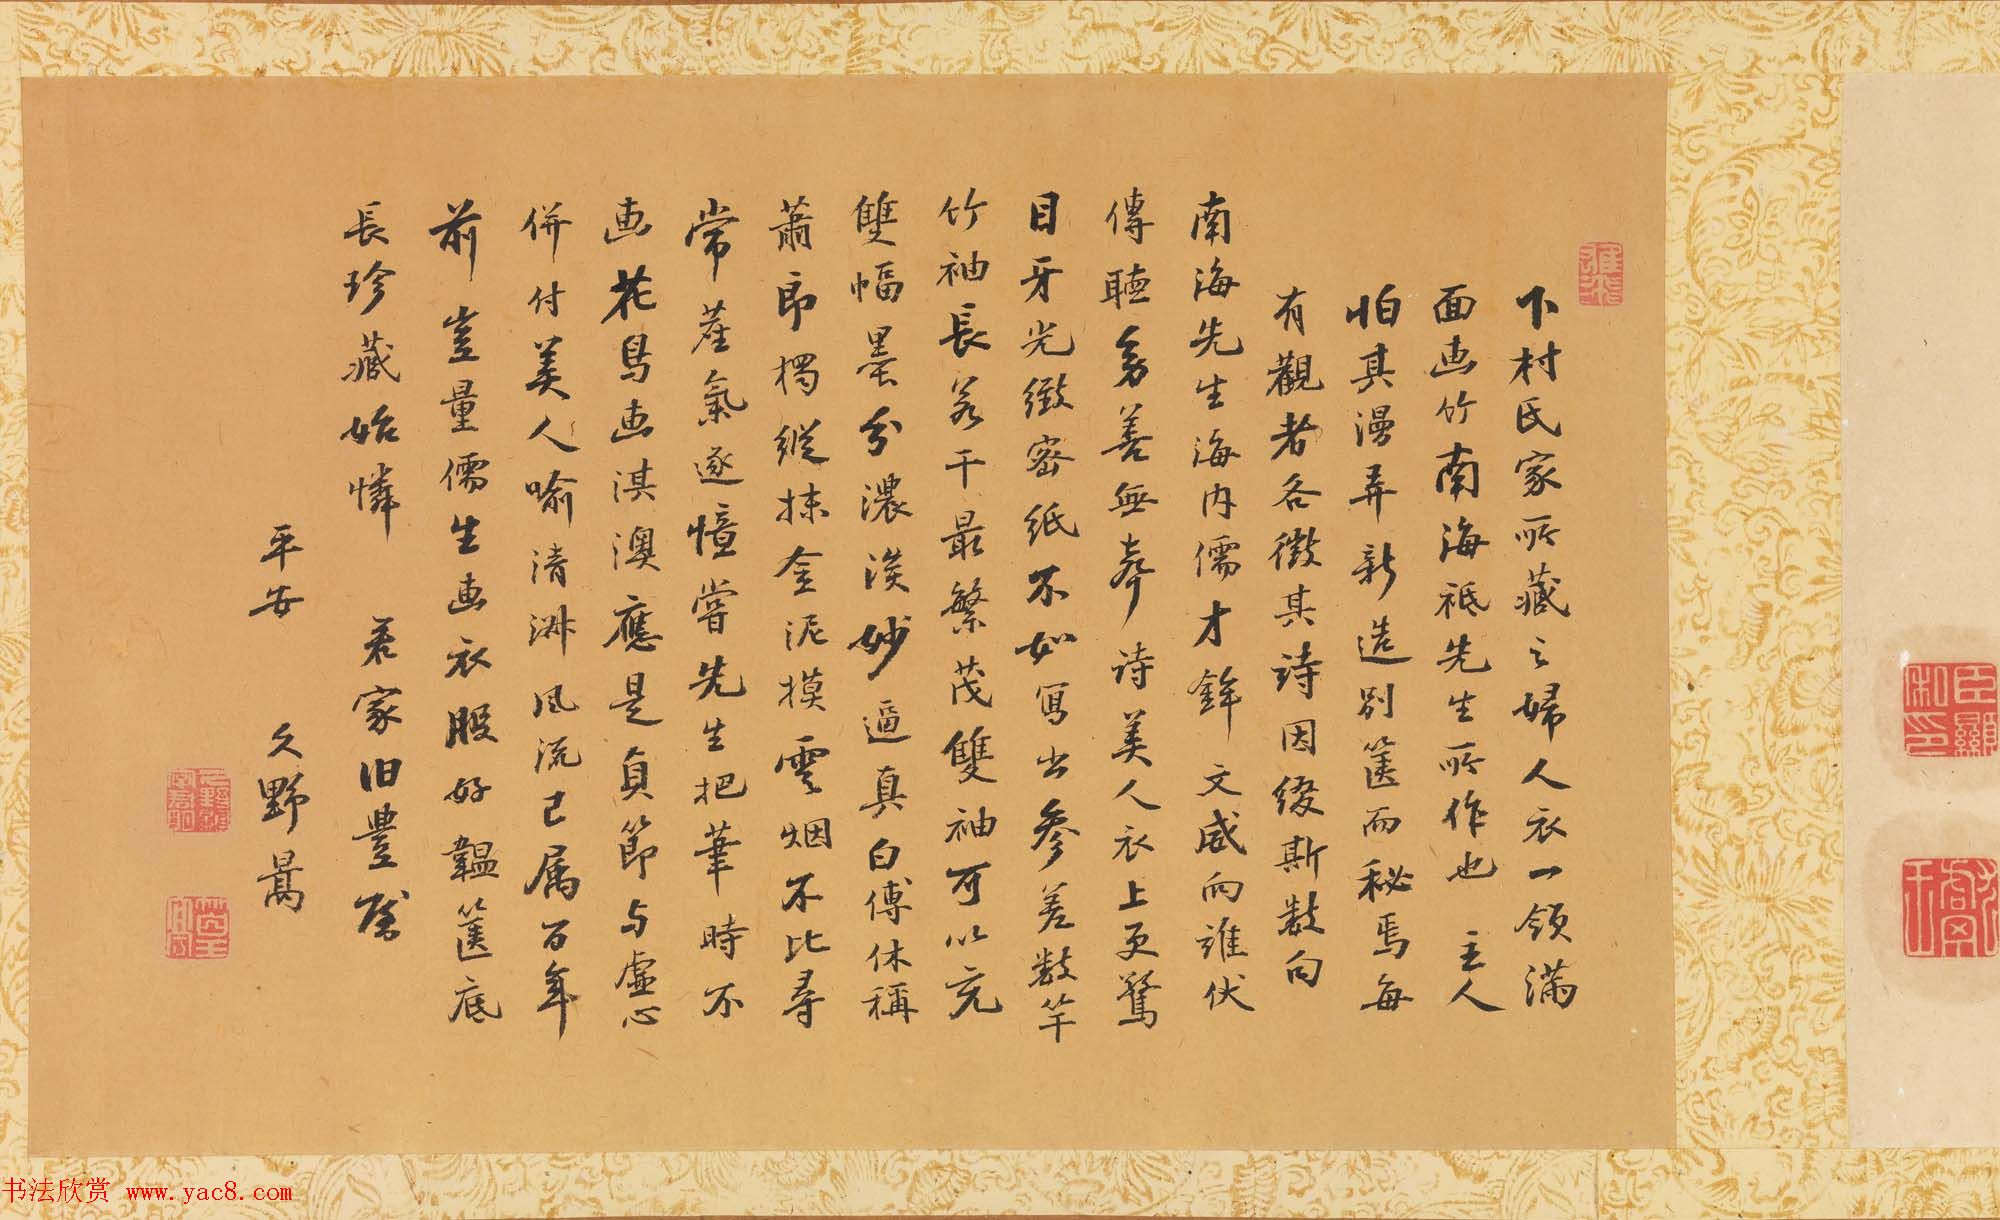 下村氏家所藏之婦人衣一領滿
面画竹南海祗先生所作也 主人
怕其漫弄新造別篋而秘焉每
有觀者各徵其詩因綴斯数句
南海先生海内儒才鋒文威向誰伏
傳聴多善無聲诗美人衣上更驚
目牙光緻密紙不如写出參差数竿
竹袖長若干最繁茂雙袖可以充
雙幅墨分濃淡妙逼真白傅休稱
蕭郎獨縱抹金泥摸雲烟不比尋
常產氣遂憶嘗先生把筆時不
画花鳥画淇澳應是貞節与虚心
併付美人喻清淋风流已属百年
前豈量儒生画衣服好韞篋底
長珍藏始憐 君家旧豊
平安 久野暠
书法欣赏 www.yac8.com